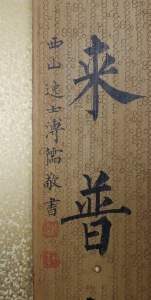 来普
西山逸士溥儒敬書